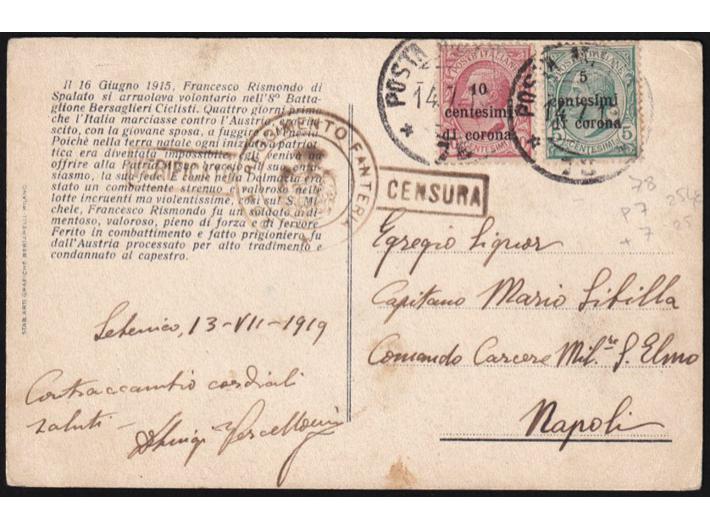 Il 16 Giugno 1915, Francesco Rismondo di
Spalato si arruolava volontario nell'8º Batta-
glione Bersaglieri Ciclisti. Quattro giorni prima
che l'Italia marciasse contro l'Austria,
scito, con la giovane sposa, a fuggire
Poichè nella terra natale ogni patriot-
tica era diventata impossibile, egli veniva ad
offrire alla Patria suo braccio, il suo entu-
siasmo, la sua fede. E come nella Dalmazia era
stato un combattente strenuo e valoroso nelle
lotte incruenti ma violentissime, così sul S. Mi-
chele, Francesco Rismondo fu un soldato ardi-
mentoso, valoroso, pieno di forza e di fervore.
Ferito in combattimento e fatto prigioniero fu
dall'Austria processato per alto tradimento e
condannato al capestro.
STAB. ARTI GRAFICHE BERTARELLI MILANO
POSTA
14.7
POSTE ITALIANE
10
centesimi
di corona
CENTESIMI
POSTA
14.7
POSTE ITALIANE
5
centesimi
di corona
5 5
CENTESIMI
78
REGGIMENTO FANTERIA
VERIFICATO
CENSURA
78
P7
+7 25
Egregio Signor
Capitano Mario Sibilla
Comando Carcere Mil.re S. Elmo
Napoli
Sebenico, 13-VII-1919
Contraccambio cordiali
saluti -